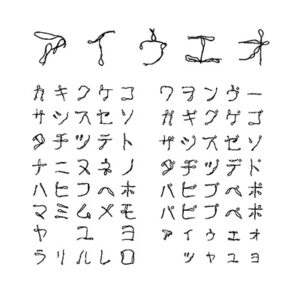 アイウエオ
カキクケコ
サシスセソ
タチツテト
ナニヌネノ
ハヒフヘホ
マミムメモ
ヤ ユ ヨ
ラリルレロ
ワヲンヴー
ガギグゲゴ
ザジズゼゾ
ダヂヅデド
バビブベボ
パピプペポ
ァィゥェォ
ッャュョ